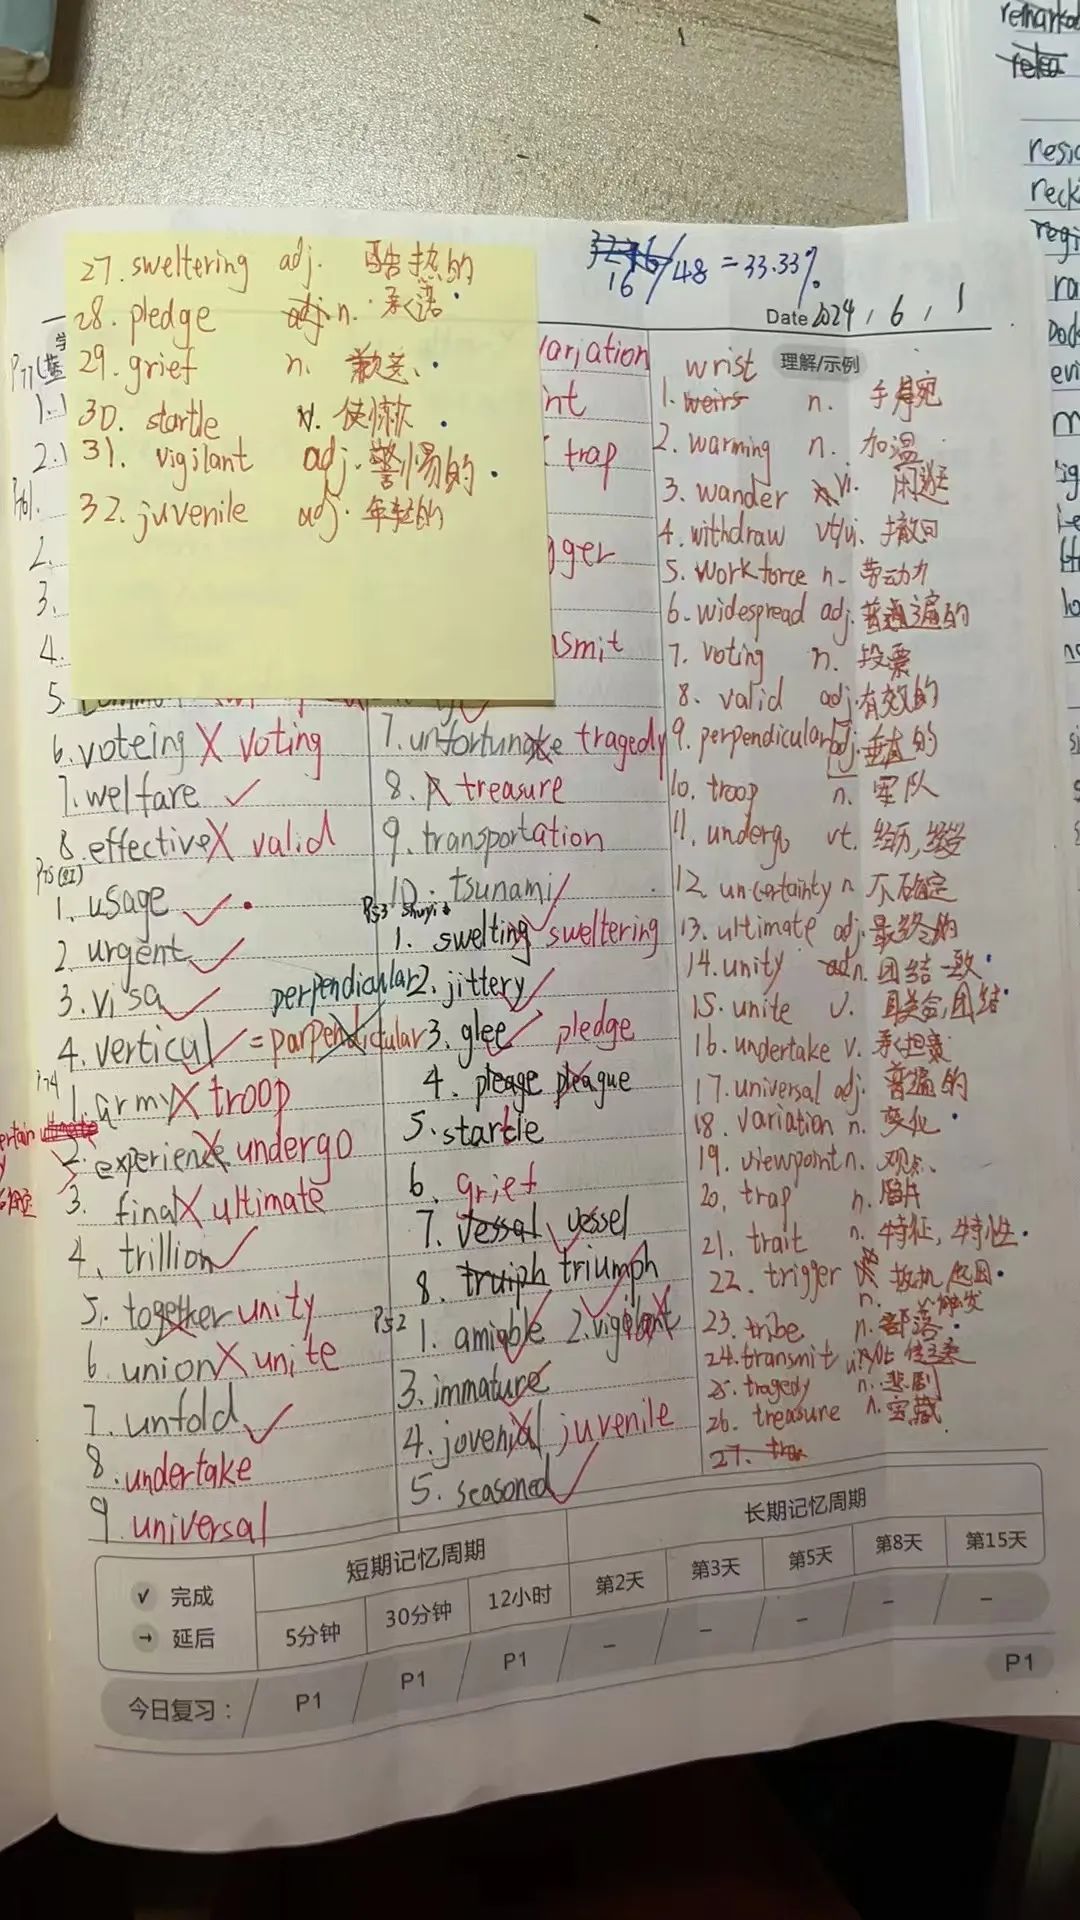 27. sweltering adj. 酷热的
28. pledge adj. n. 承诺
29. grief n.
30. startle v. 使惊
31. vigilant adj. 警惕的
32. juvenile adj. 年轻的
16/48 = 33.33%
Date 2024, 6, 1
理解/示例
variation
trap
1.
2.
2.
3.
4.
5.
6. voteing X voting
7. welfare ✓
8. effective X valid
P75(红)
1. usage ✓
2. urgent ✓
3. visa ✓
4. vertical ✓ = parpendicular
perpendicular
P74
1. army X troop
2. experience undergo
3. final X ultimate
4. trillion ✓
5. together unity
6. union X unite
7. unfold ✓
8. undertake
9. universal
7. unfortunate tragedy
8. treasure
9. transportation
10. tsunami
P53 shuyi
1. swelting sweltering
2. jittery ✓
3. glee ✓ pledge
4. pleage pleague
5. startle
6. grief
7. vessal vessel
8. truiph triumph
P52
1. amiable 2. vigilant
3. immature
4. jovenial juvenile
5. seasoned ✓
wrist
1. weirs n. 手腕
2. warming n. 加温
3. wander vi. 闲逛
4. withdraw vt/vi. 撤回
5. workforce n. 劳动力
6. widespread adj. 普遍的
7. voting n. 投票
8. valid adj. 有效的
9. perpendicular adj. 垂直的
10. troop n. 军队
11. undergo vt. 经历,经受
12. uncertainty n 不确定
13. ultimate adj. 最终的
14. unity n. 团结一致
15. unite v. 联合,团结
16. undertake v. 承担
17. universal adj. 普遍的
18. variation n. 变化
19. viewpoint n. 观点
20. trap n. 陷阱
21. trait n. 特征,特性
22. trigger 扳机 起因
n. 触发
23. tribe n. 部落
24. transmit
25. tragedy n. 悲剧
26. treasure n. 宝藏
27.
✓ 完成
→ 延后
短期记忆周期
长期记忆周期
5分钟 30分钟 12小时 第2天 第3天 第5天 第8天 第15天
今日复习: P1 P1 P1 - - - - -
P1